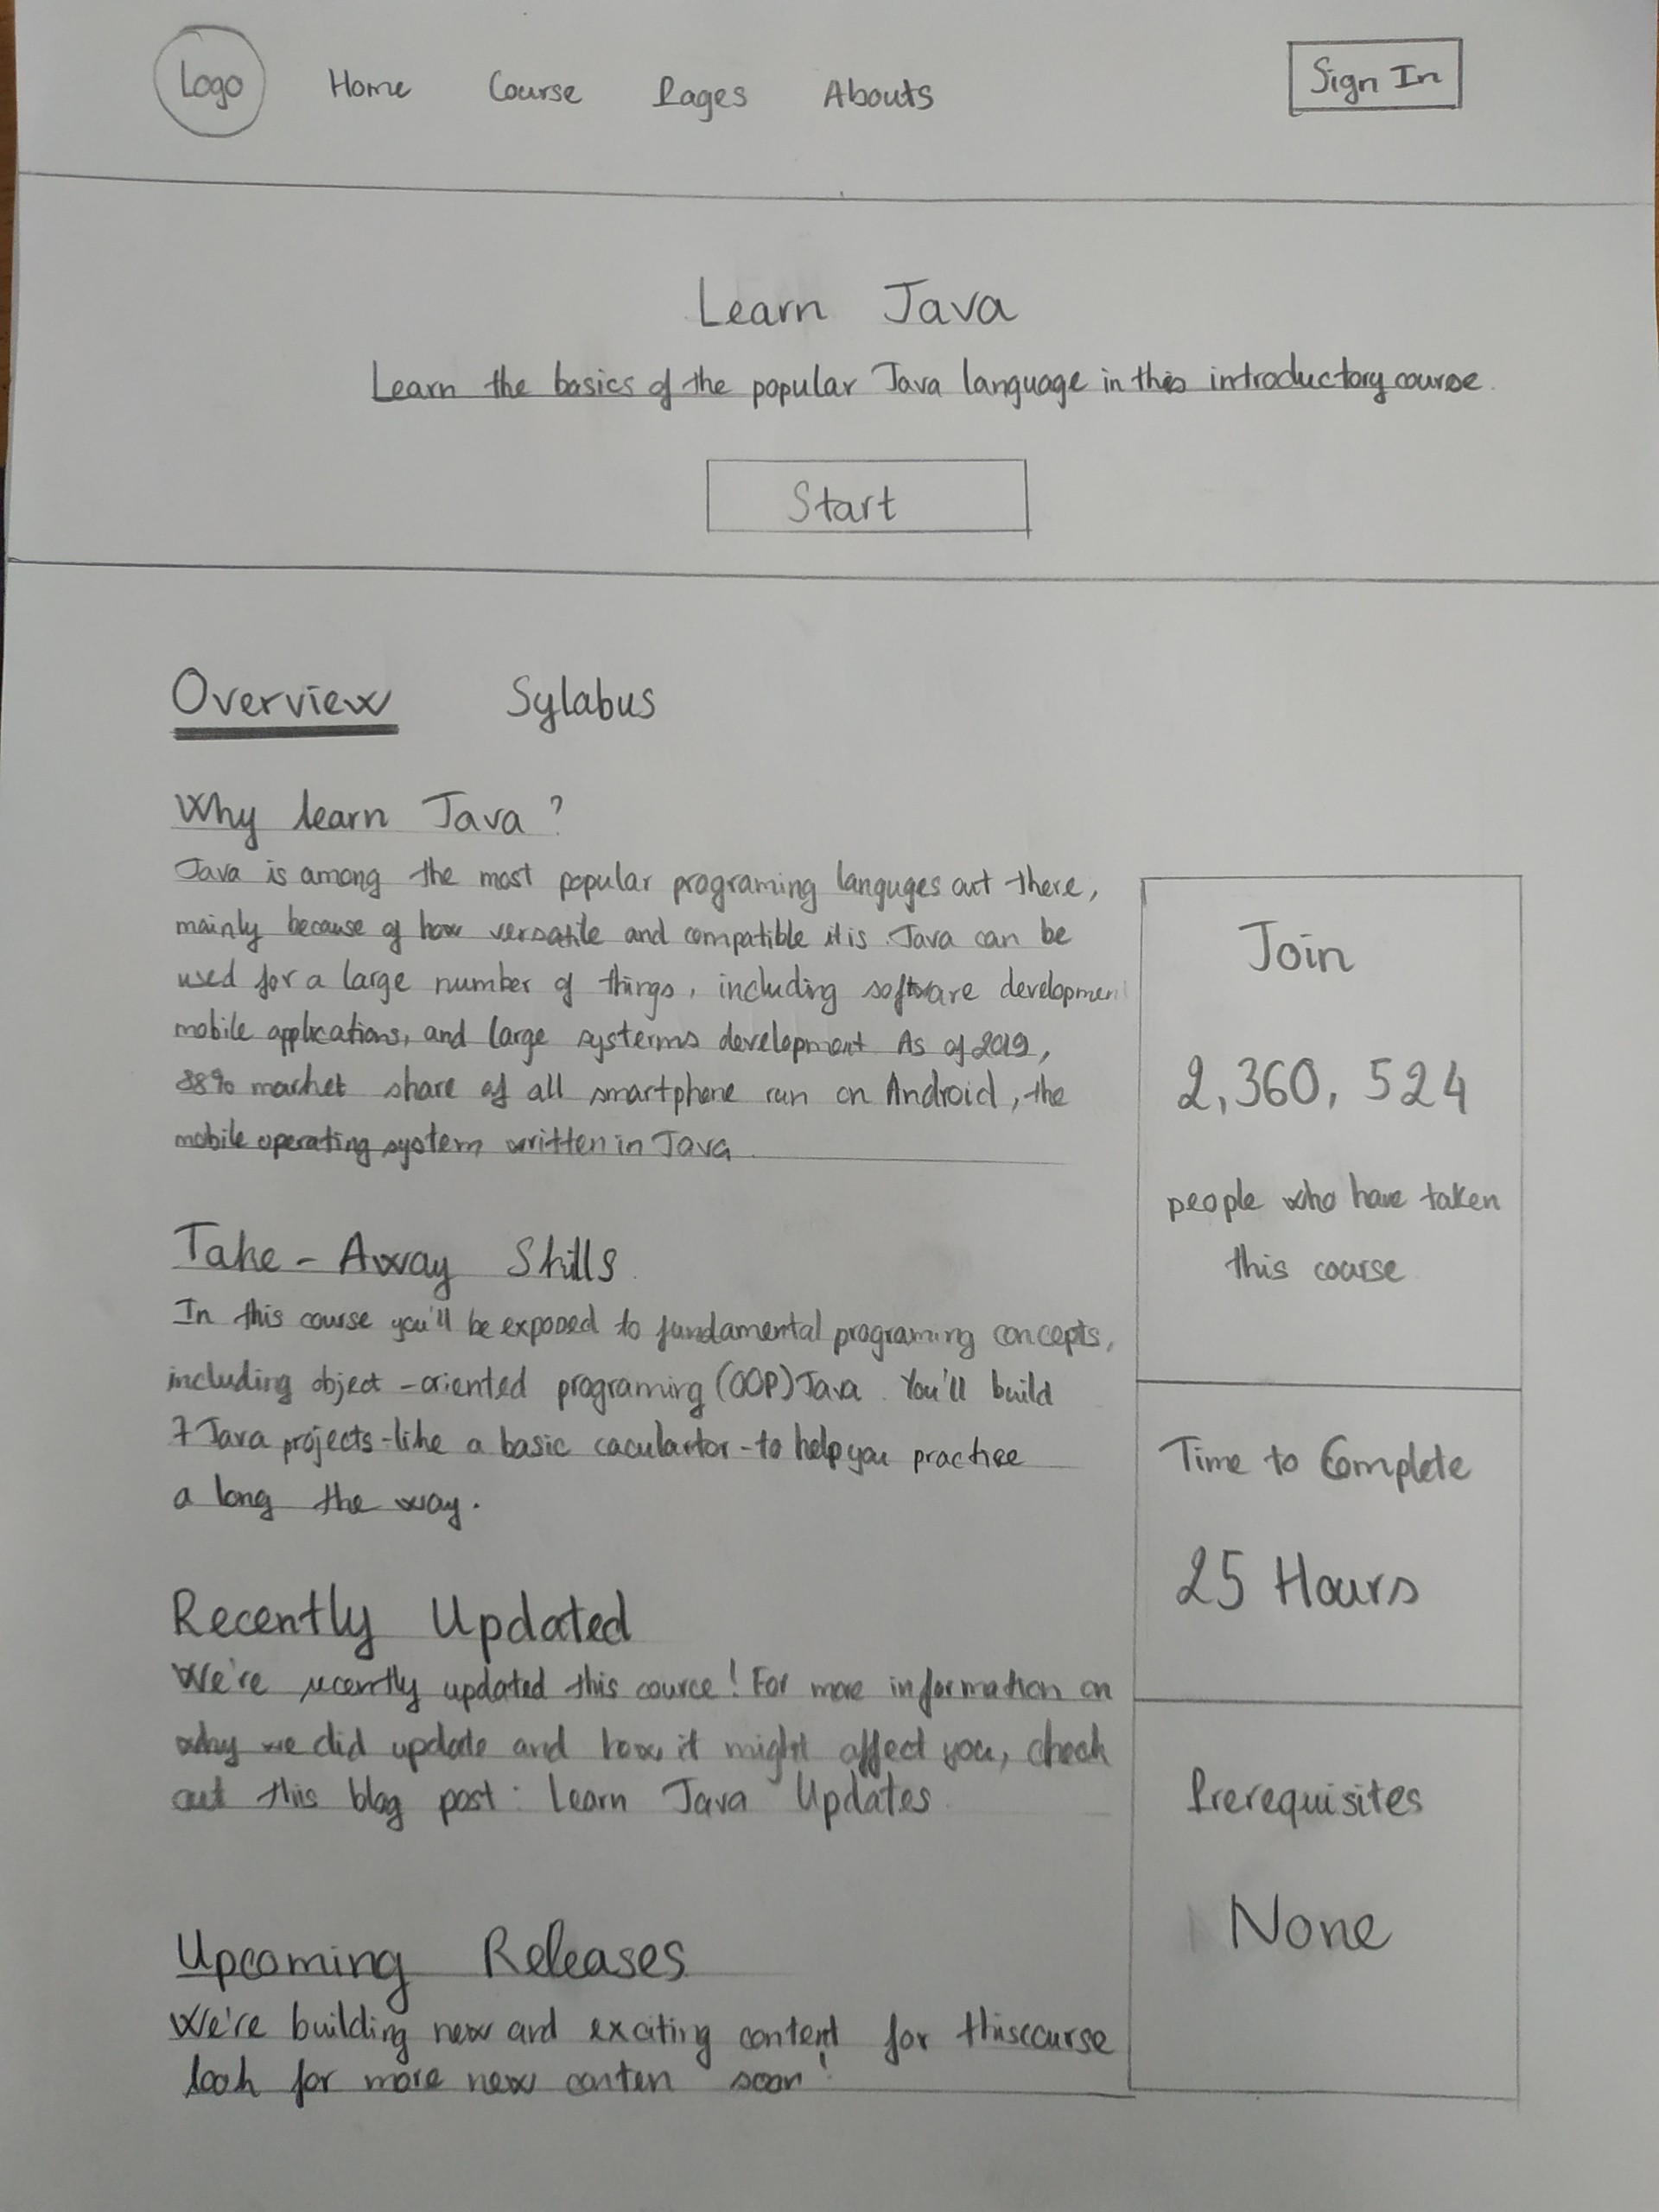 Logo Home Course Pages Abouts Sign In
Learn Java
Learn the basics of the popular Java language in this introductory course.
Start
Overview Sylabus
Why learn Java ?
Java is among the most popular programing languges out there,
mainly because of how versatile and compatible it is. Java can be
used for a large number of things, including software developmen
mobile applications, and large systerms development As of 2019,
88% market share of all smartphone run on Android, the
mobile operating system written in Java.
Take - Away Skills.
In this course you'll be exposed to fundamental programing concepts,
including object - oriented programing (OOP) Java. You'll build
7 Java projects - like a basic caculartor - to help you practice
a long the way.
Recently Updated
We're recently updated this cource! For more information on
why we did update and how it might affect you, check
out this blog post : Learn Java Updates
Upcoming Releases
We're building new and exciting content for this course
look for more new conten soon!
Join
2,360, 524
people who have taken
this course
Time to Complete
25 Hours
Prerequisites
None